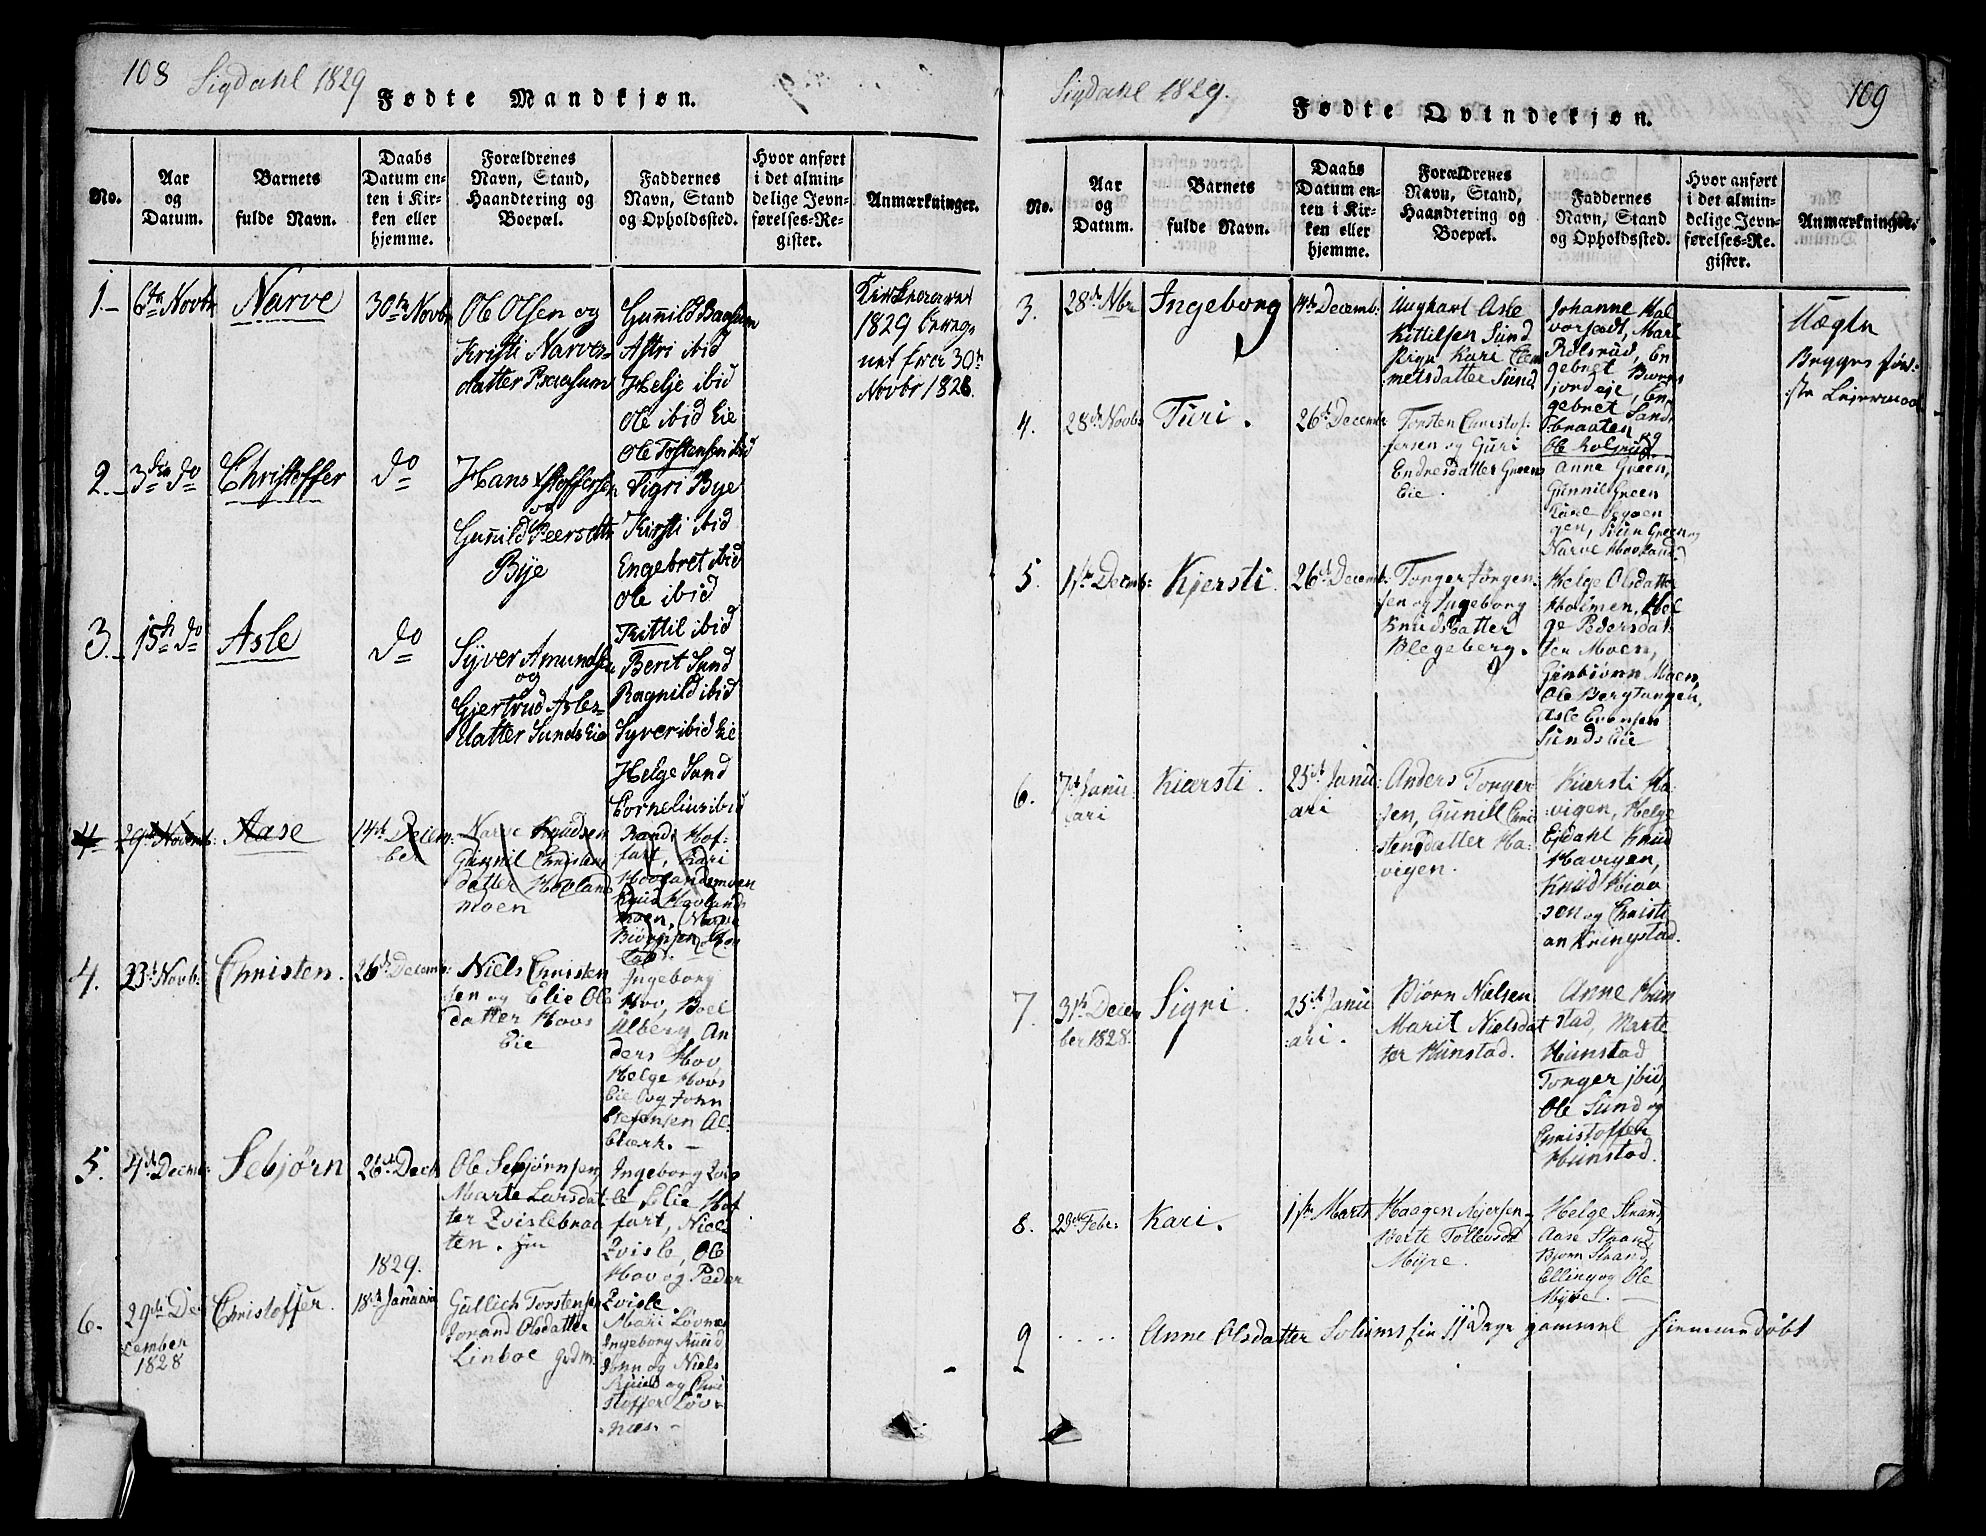 108 Sigdahl 1829
Fødte Mandkjøn.
No.
Aar
og
Datum.
Barnets
fulde Navn.
Daabs
Datum en-
ten i Kir-
ken eller
hjemme.
Forældrenes
Navn, Stand,
Haandtering og
Boepæl.
Faddernes
Navn, Stand
og Opholdssted.
Hvor anført
i det almin-
delige Jevn-
førelses-Re-
gister.
Anmærkninger.
1 6te Novbr Narve 30te Novbr
Ole Olsen og
Kristi Narves-
datter
Gunild
Astri ibid
Helje ibid
Ole ibid Eie
Ole Tostensen ibid
1829 bereg-
net fra 30te
Novbr 1828.
2. 3die do Christoffer do
Hans
og
Gunild Peersdtr
Bye
Sigri Bye
Kirsti ibid
Engebret ibid
Ole ibid
Kittil ibid
3. 15de do Asle do
Syver Amundsen
og
Gjertrud Asles-
datter Sunds Eie
Berit Sund
Ragnild ibid
Syver ibid Eie
Helge Sund
Cornelius ibid
4 29de Novemb: Aase 14de Decem-
ber
Narve Knudsen
Gunnil
datter Hovland
moen
Hof-
fart, Kari
Hovlandsmoen
Knud Hovlands
moen,
4. 23de Novb: Christen. 26de Decemb:
Niels Christen
sen og Elie Ols
datter Hovs
Eie
Ingeborg
Hov, Boel
Ulberg, An
ders Hov,
Helge Hovs
Eie og John
5. 4de Decmb: Sebjørn 26de Decb
Ole Sebjørnsen,
Marte Larsdat
ter Zvislebraa
ten.
Ingeborg Zvis
le, Elie Hof
fart, Niels
Zvisle, Ole
Hov og Peder
Zvisle.
1829.
6. 29de De
cember
1828
Christoffer. 18de Januari
Gullich Torstensen
Jorand Olsdatter
Linboe
Mari Løvnæs
Ingeborg Ruud
John og Niels
Ruud og Chri
stoffer Løv-
næs.
Sigdahl 1829.
109
Fødte Qvindekjøn.
No.
Aar
og
Datum.
Barnets
fulde Navn.
Daabs
Datum en-
ten i Kir-
ken eller
hjemme.
Forældrenes
Navn, Stand,
Haandtering og
Boepæl.
Faddernes
Navn, Stand
og Opholdssted.
Hvor anført
i det almin-
delige Jevn-
førelses-Re-
gister.
Anmærkninger.
3. 28de Nbr Ingeborg 14de Decemb:
Ungkarl Asle
Kittilsen Sund
Pige Kari Clem
metsdatter Sund
Johanne Hal
Rolsrud, En
gebret
jordeje, En
gebret Sand
braaten og
Ole Rolsrud
Uægte
4. 28de Novb: Turi. 26de Decemb
Torsten Christof-
fersen og Guri
Endresdatter Greens
Eie.
Anne Green,
Gunnil Green
Narve Hovland
5. 1ste Decmb: Kjersti. 26de Decemb:
Torger Jørgen
sen og Ingeborg
Knudsdatter
Blegeberg.
Helge Olsdatter
Holmen, Hel
ge Pedersdat
ter Moen,
Ole Bergtangen,
Asle Evensen
Sunds Eie
6. 7de Janu:
ari
Kiersti. 25de Janu:
ari
Anders Torger
sen, Gunild Chri
stensdatter Ha:
vigen.
Kiersti Ha
vigen, Helge
Eidahl Knud
Havigen,
sen og Christi
an Kringstad.
7. 31te Decem
ber 1828.
Sigri. 25de Janu
ari.
Bjørn Nielsen
Marit Nielsdat
ter Hunstad.
Anne Hun
stad, Marte
Hunstad
Torger ibid,
Ole Sund og
Christoffer
Hunstad.
8. 23de Febr: Kari. 1ste Marts
Haagen Rejersen,
Berte Tollevsd
Myre.
Helge Strand,
Aase Strand,
Bjørn Strand,
Elling og Ole
Myre.
9 .... Anne Olsdatter Dage gammel hjemmedøbt